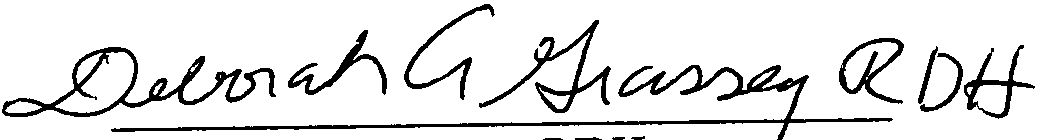 Deborah A Grassey RDH